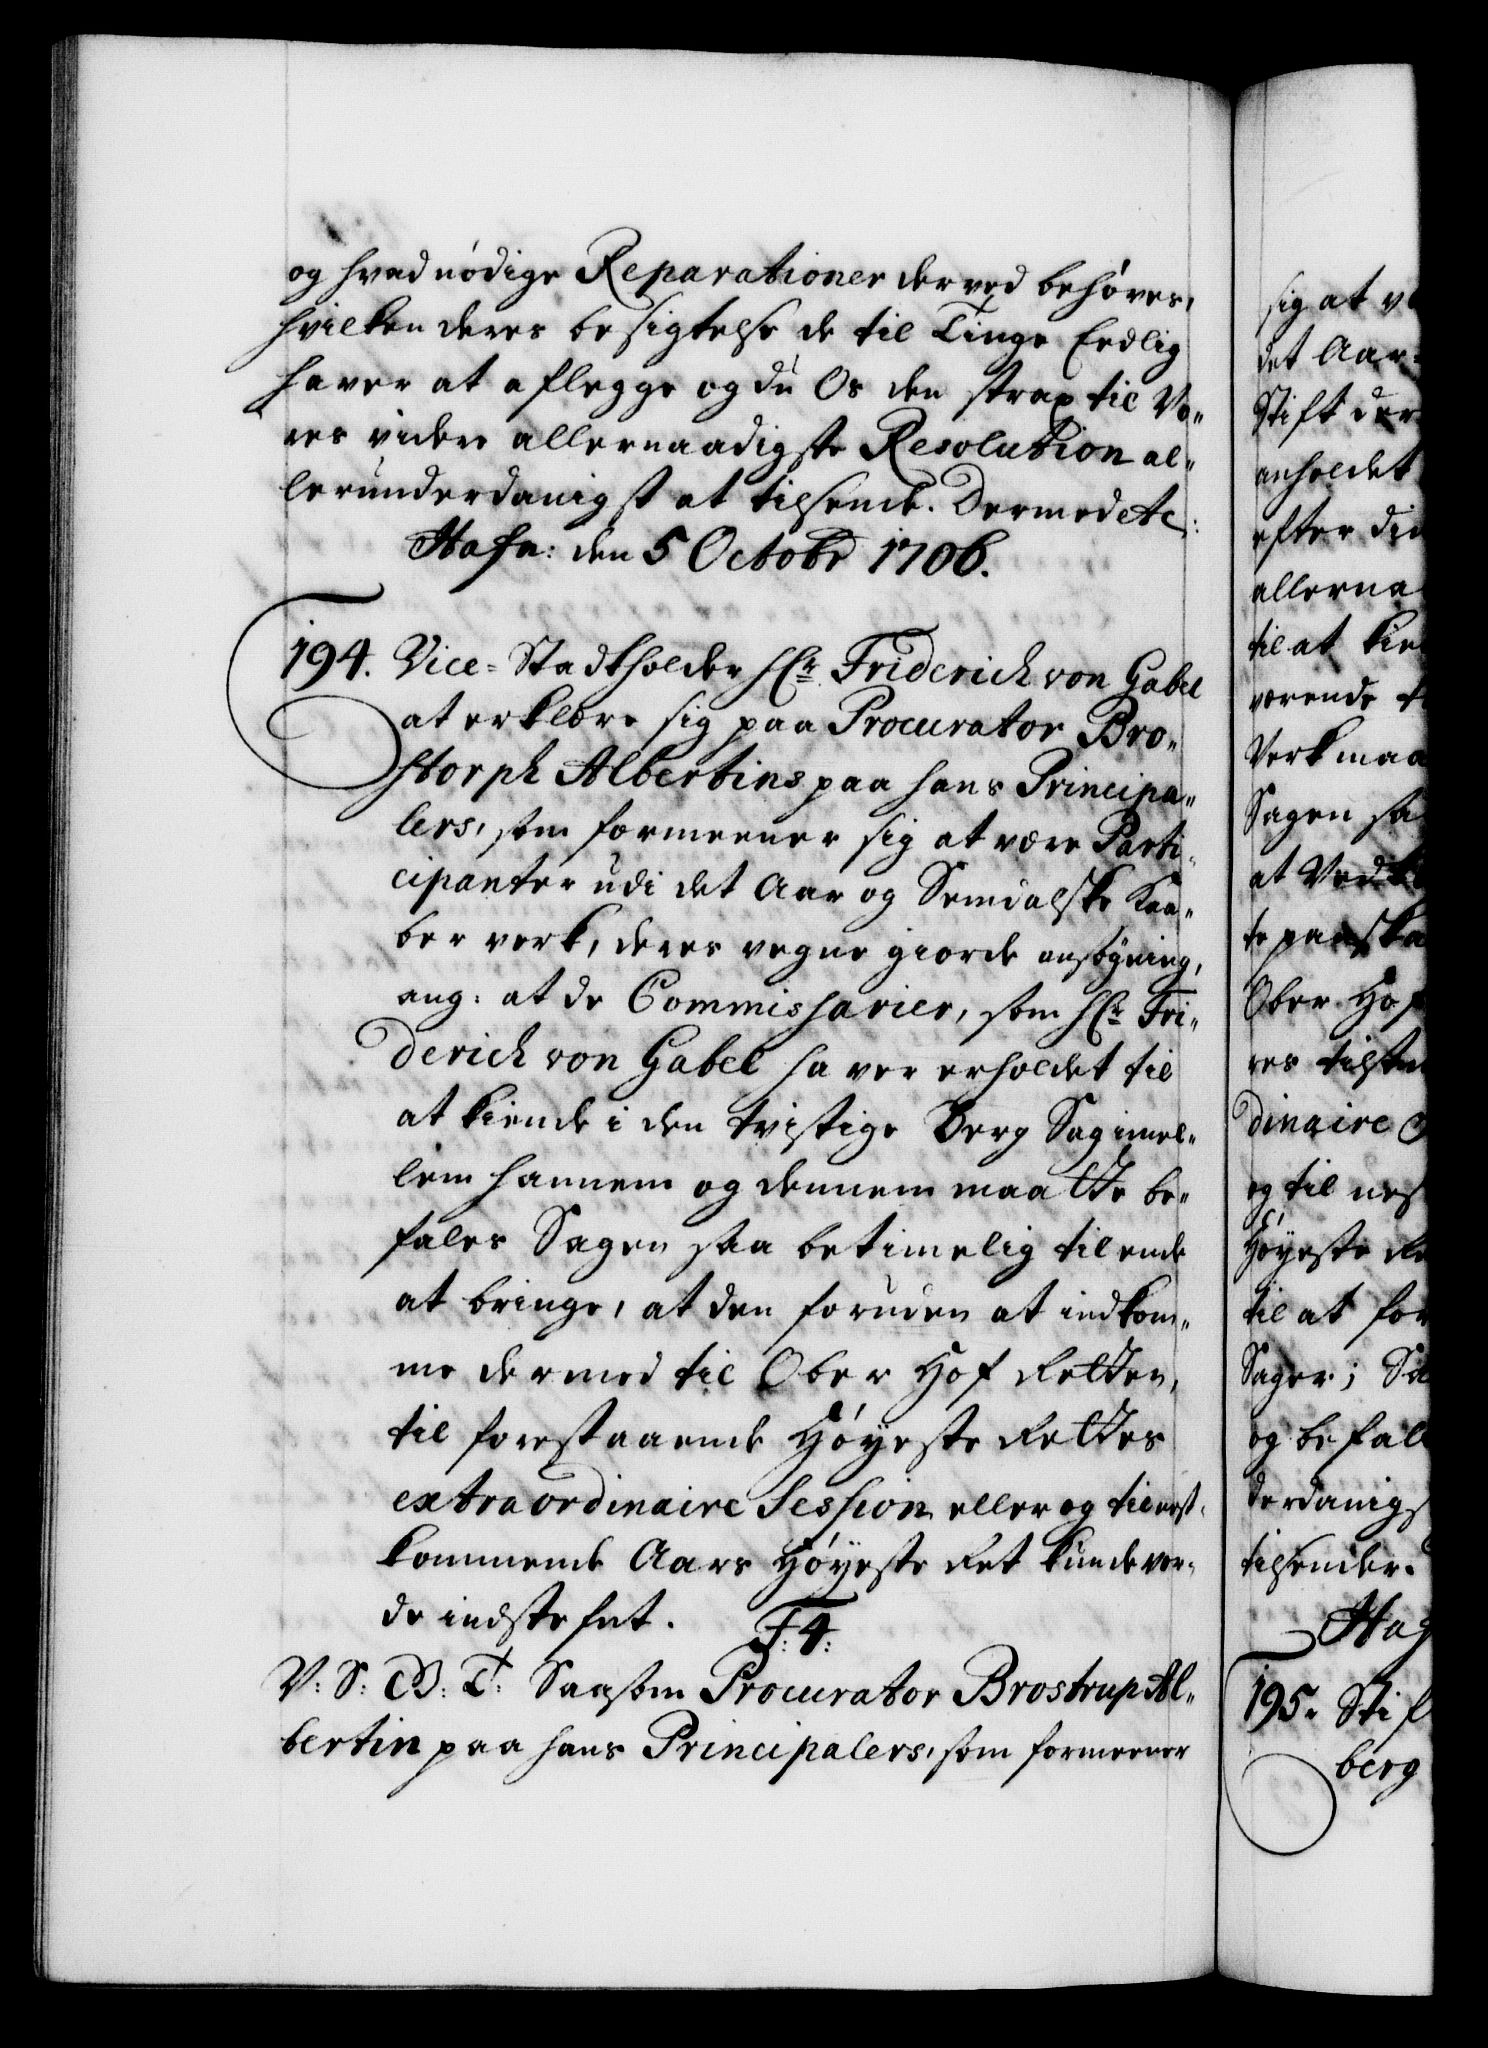 og hvad nödige Reparationer derved behöves,
hvilken deres besigtelse de til Tinge Eedlig
haver at aflegge og du Os den strax til Vo„
res videre allernaadigste Resolution al„
lerunderdanigst at tilsende. Dermed etc:
Hafn: den 5 Octobr 1706.
194. Vice=Stadtholder Hr. Friderich von Gabel
at erklære sig paa Procurator Bro„
storph Albertins paa hans Principa„
lers, som formeener sig at være Parti„
cipanter udi det Aar og Semdalske Kaa„
ber verk, deres vegne giorde ansögning,
ang: at de Commissarier, som Hr. Fri„
derich von Gabel haver erholdet til
at kiende i den tvistige Berg Sag imel„
lem hannem og dennem maatte be„
fales Sagen saa betimelig til ende
at bringe, at den foruden at indkom„
me dermed til Ober Hof Retten,
til forestaaende Höyeste Rettes
extraordinaire Session eller og til nest„
kommende Aars Höyeste Ret kunde vor„
de indstefnt. F: 4:
V: S: G: T: Saasom Procurator Brostrup Al„
bertin paa hans Principalers, som formeener
sig at
det Aar=
Stift der
anholdet
efter
allerna
til at kie
værende
Verk maa
Sagen sa
at
te paaska
Ober Hof
res tilsten
dinaire
og til nes
Höyeste Re
til at for
Sager;
og befal
derdanigs
tilsender.
Haf
195. Stif
berg